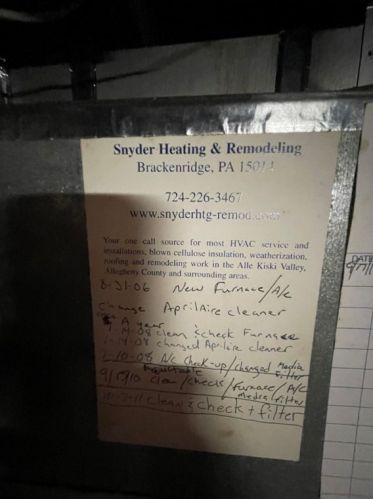 Snyder Heating & Remodeling
Brackenridge, PA 15014
724-226-3467
www.snyderhtg-remod.com
Your one call source for most HVAC service and
installations, blown cellulose insulation, weatherization,
roofing and remodeling work in the Alle Kiski Valley,
Allegheny County and surrounding areas.
8-31-06 New Furnace/A/C
change AprilAire cleaner
A year
-14-08 clean & check Furnace
-14-08 changed Aprilaire cleaner
-10-08 A/c check-up/changed Media
Filter
9/15/10 clean/check/furnace/A/C
media filter
-11 clean & check + filter
DATE